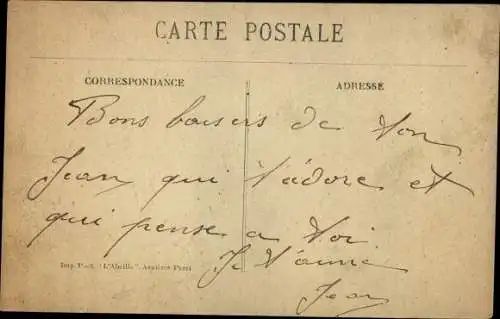 CARTE POSTALE
CORRESPONDANCE
ADRESSE
Bons baisers de ton
Jean qui t'adore et
qui pense a toi
Je t'aime
Jean
Imp. Phot. "L'Abeille". Asnières Paris